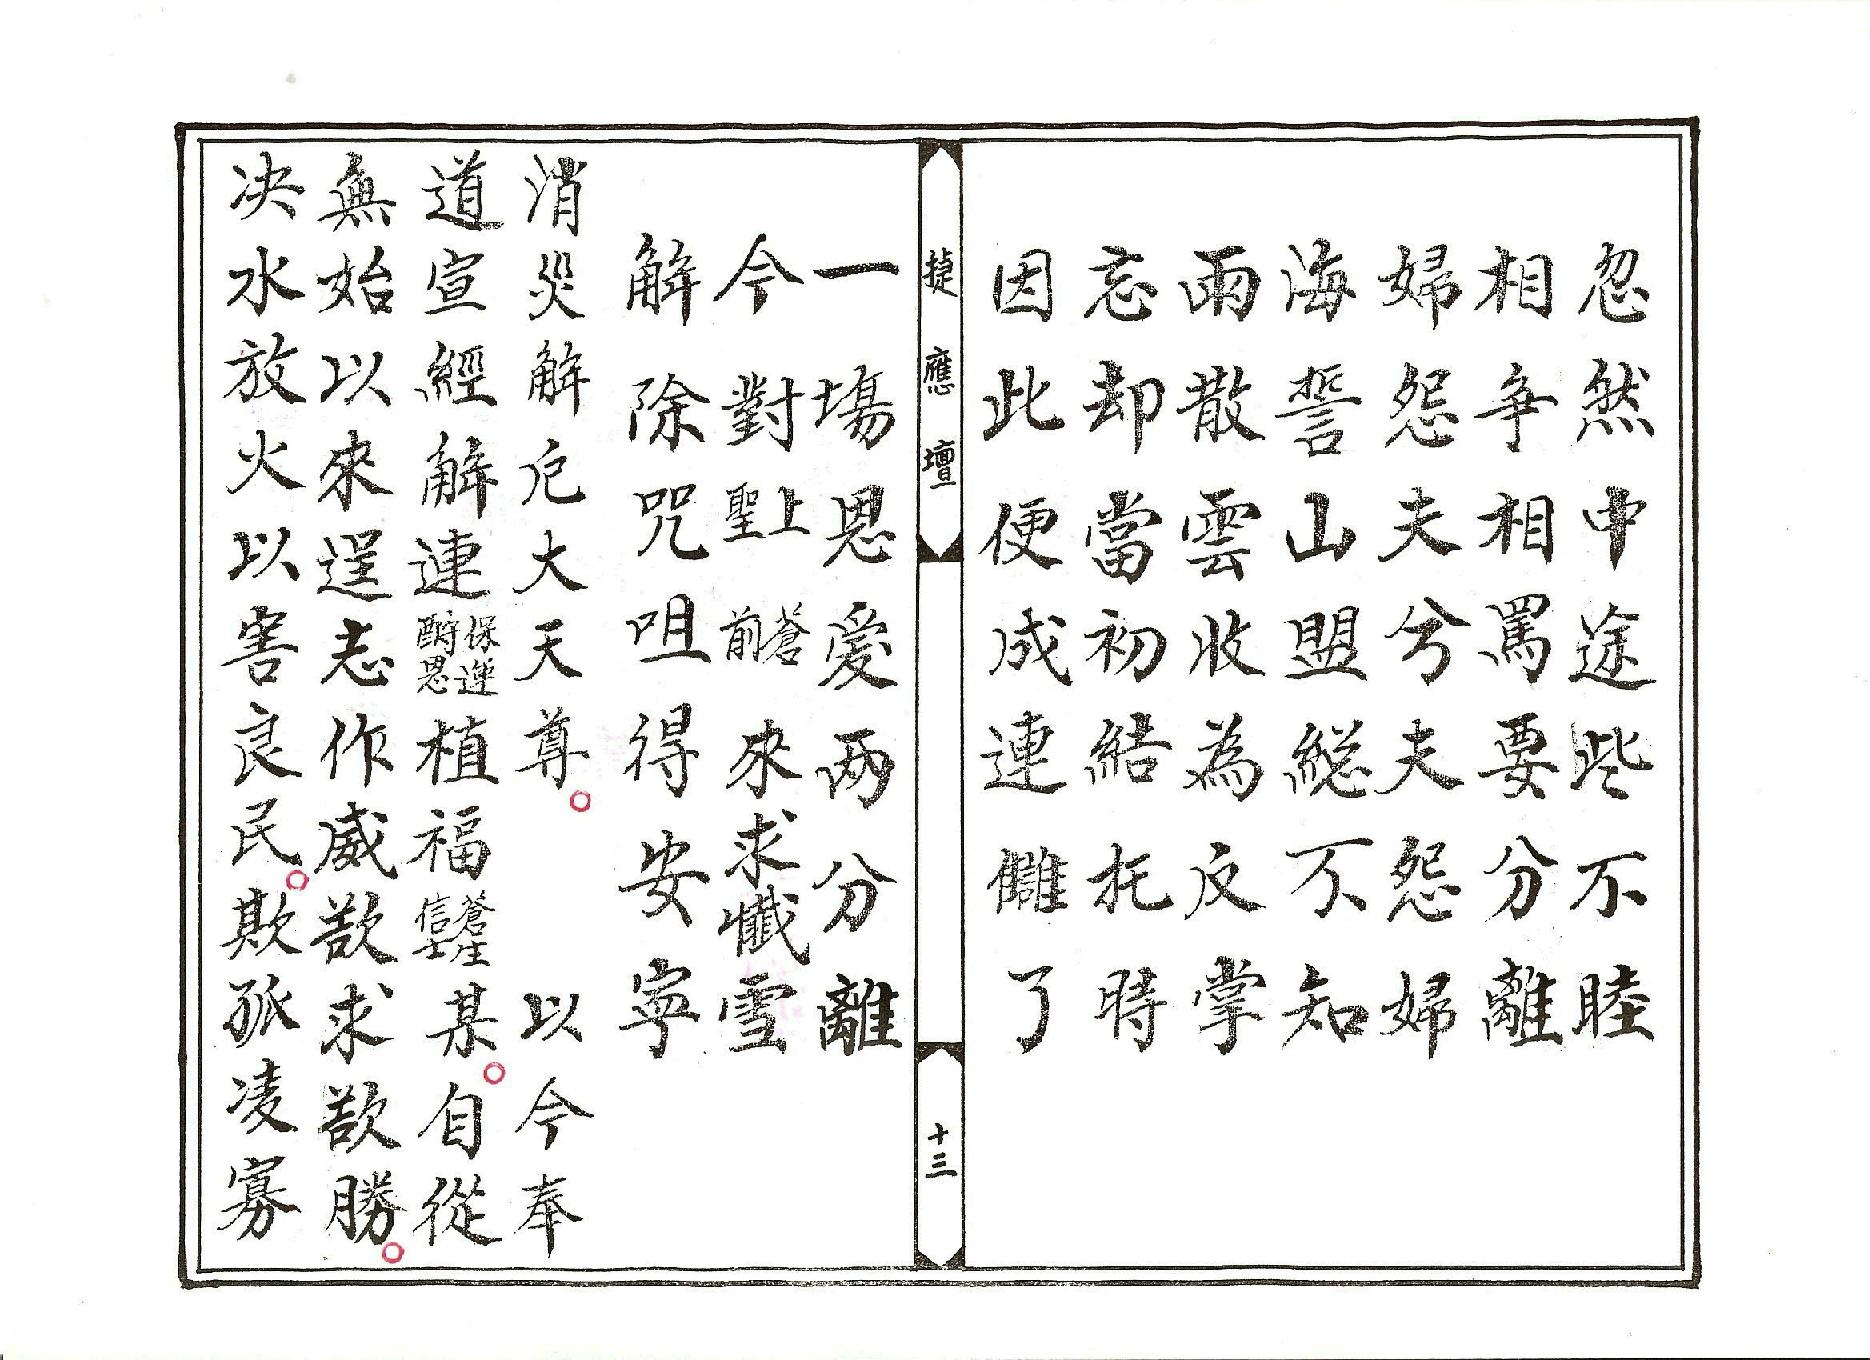 忽然中途些不睦
相争相罵要分離
婦怨夫兮夫怨婦
海誓山盟総不知
雨散雲收為反掌
忘却當初結托時
因此便成連讎了
捷應壇
十三
一場恩爱两分離
今對聖上前蒼來求懺雪
解除咒咀得安寧
消災解厄大天尊。以今奉
道宣經解連保運酧恩植福蒼生信士某。自從
無始以來逞志作威欲求欲勝。
决水放火以害良民。欺孤凌寡